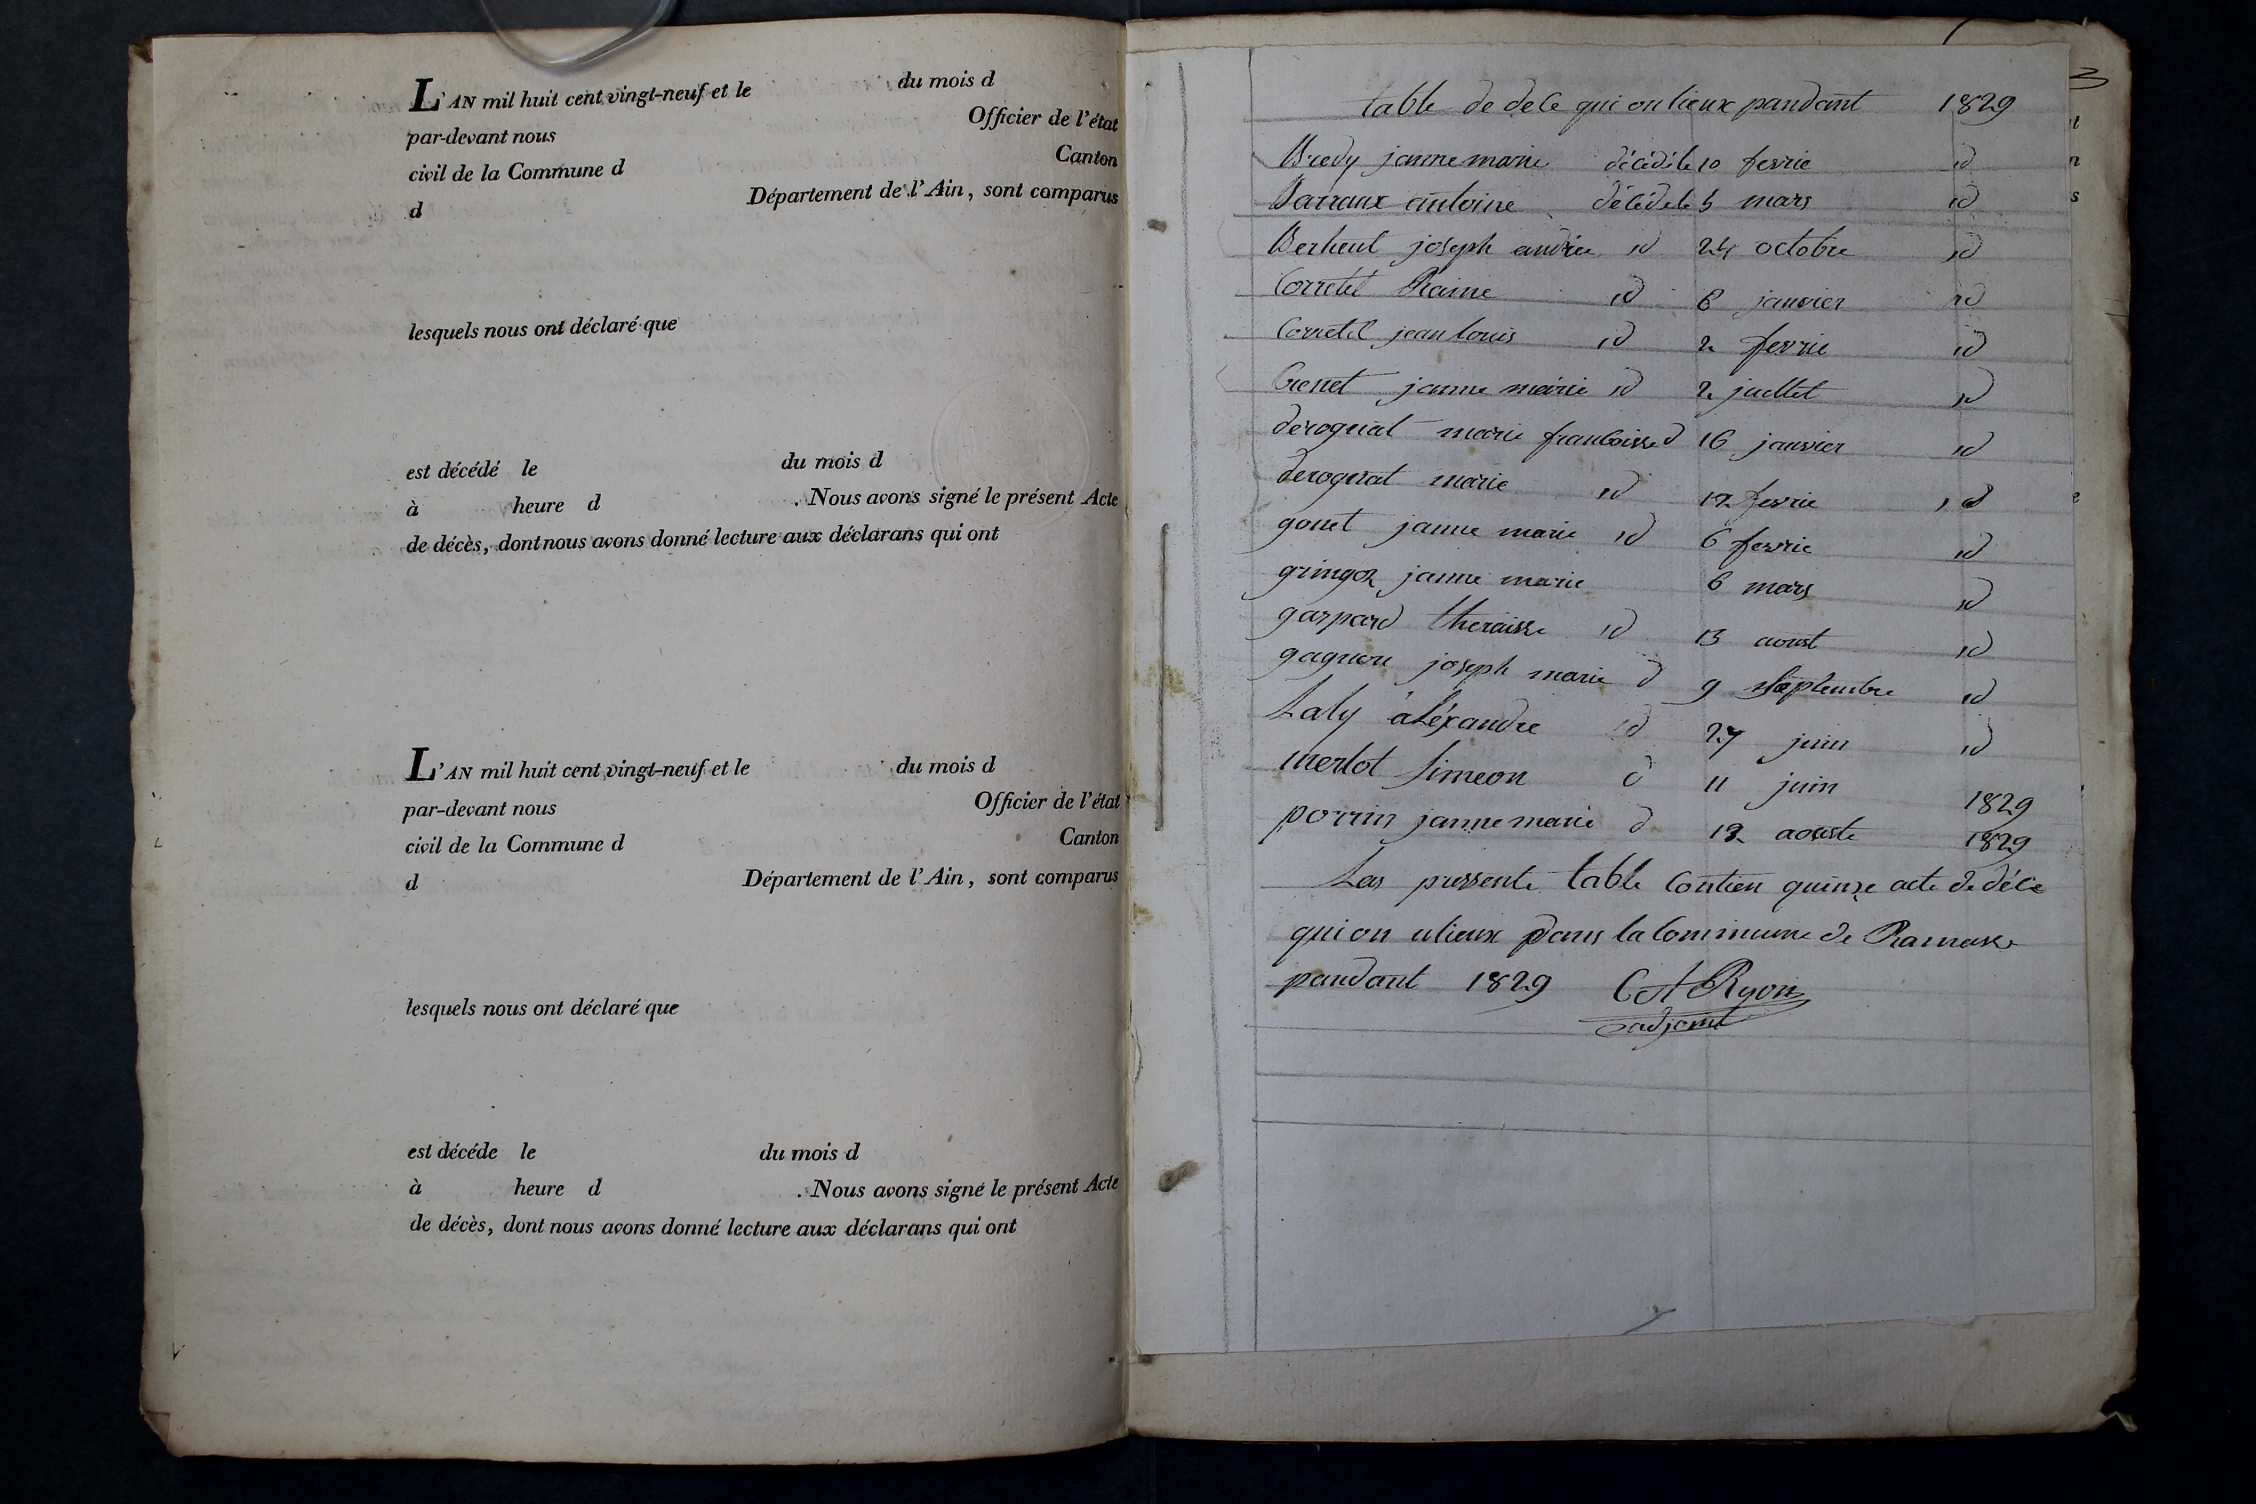 L'AN mil huit cent vingt-neuf et le du mois d
par-devant nous Officier de l'état
civil de la Commune d Canton
d Département de l'Ain, sont comparus
lesquels nous ont déclaré que
est décédé le du mois d
à heure d . Nous avons signé le présent Acte
de décès, dont nous avons donné lecture aux déclarans qui ont
L'AN mil huit cent vingt-neuf et le du mois d
par-devant nous Officier de l'état
civil de la Commune d Canton
d Département de l'Ain, sont comparus
lesquels nous ont déclaré que
est décéde le du mois d
à heure d . Nous avons signé le présent Acte
de décès, dont nous avons donné lecture aux déclarans qui ont
table de dece qui on lieux pandant 1829
Bredy janne marie décédé le 10 fevrie id
Barraux antoine décédé le 5 mars id
joseph andrée id 24 octobre id
Corretel 6 janvier id
Corretel jean louis id 2 fevrie id
janne marie id 2 juellet id
derognat marie francoisse d 16 janvier id
derognat marie id 12 fevrie id
gonet janne marie id 6 fevrie id
gringoz janne marie 6 mars id
gaspard theraisse id 13 aoust id
gagneu joseph marie d 9 septembre id
Laly aléxandre id 27 juin id
merlot simeon d 11 juin 1829
porrin janne marie d 12 aouste 1829
Las pressente table contien quinze acte de déce
qui on ulieux dans la commune de Ramasse
pandant 1829 Ct Ryon
adjoint